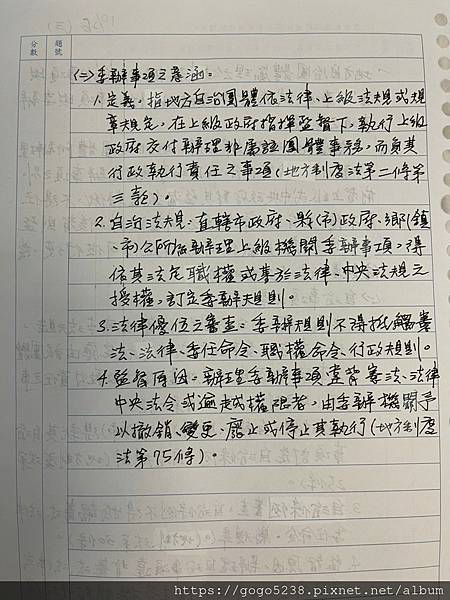 題號
分數
(二)委辦事項之意涵:
1.定義:指地方自治團體依法律、上級法規或規
章規定,在上級政府指揮監督下,執行上級
政府交付辦理非屬該團體事務,而負其
行政執行責任之事項(地方制度法第二條第
三款)。
2.自治法規:直轄市政府、縣(市)政府、鄉(鎮
、市)公所為辦理上級機關委辦事項,得
依其法定職權或基於法律、中央法規之
授權,訂定委辦規則。
3.法律優位之審查:委辦規則不得抵觸憲
法、法律、委任命令、職權命令、行政規則。
4.監督原因:辦理委辦事項違背憲法、法律
中央法令或逾越權限者,由委辦機關予
以撤銷、變更、廢止或停止其執行(地方制度
法第75條)。
https://gogo5238.pixnet.net/album